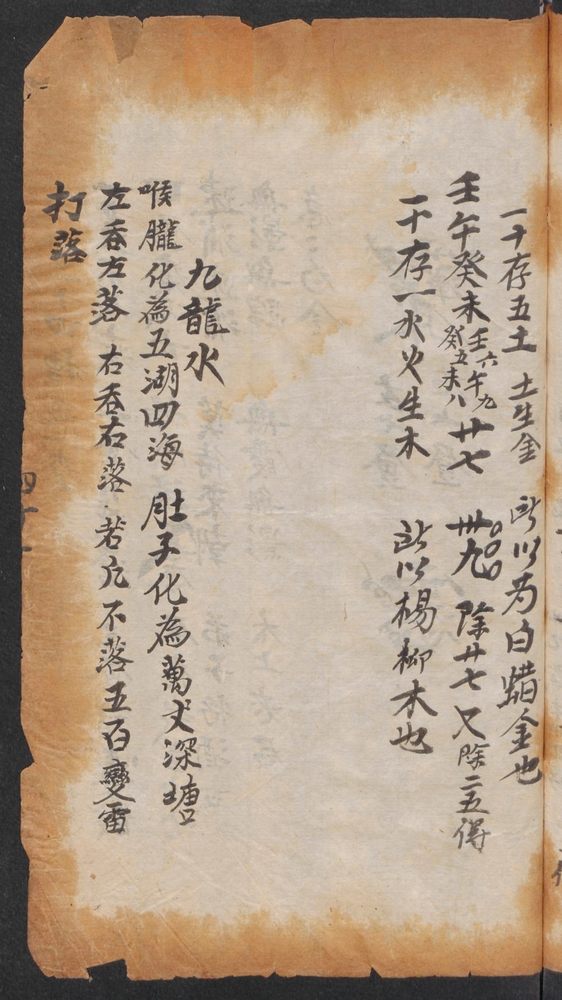 一十存五土 土生金 所以为白蜡金也
壬午癸未 壬六午九 癸五未八 廿七 卅九 除廿七又除二五得
一十存一水 火生木 所以楊柳木也
九龍水
喉朧化為五湖四海 肚子化為萬丈深塘
左吞左落 右吞右落 若凡不落五百變雷
打落